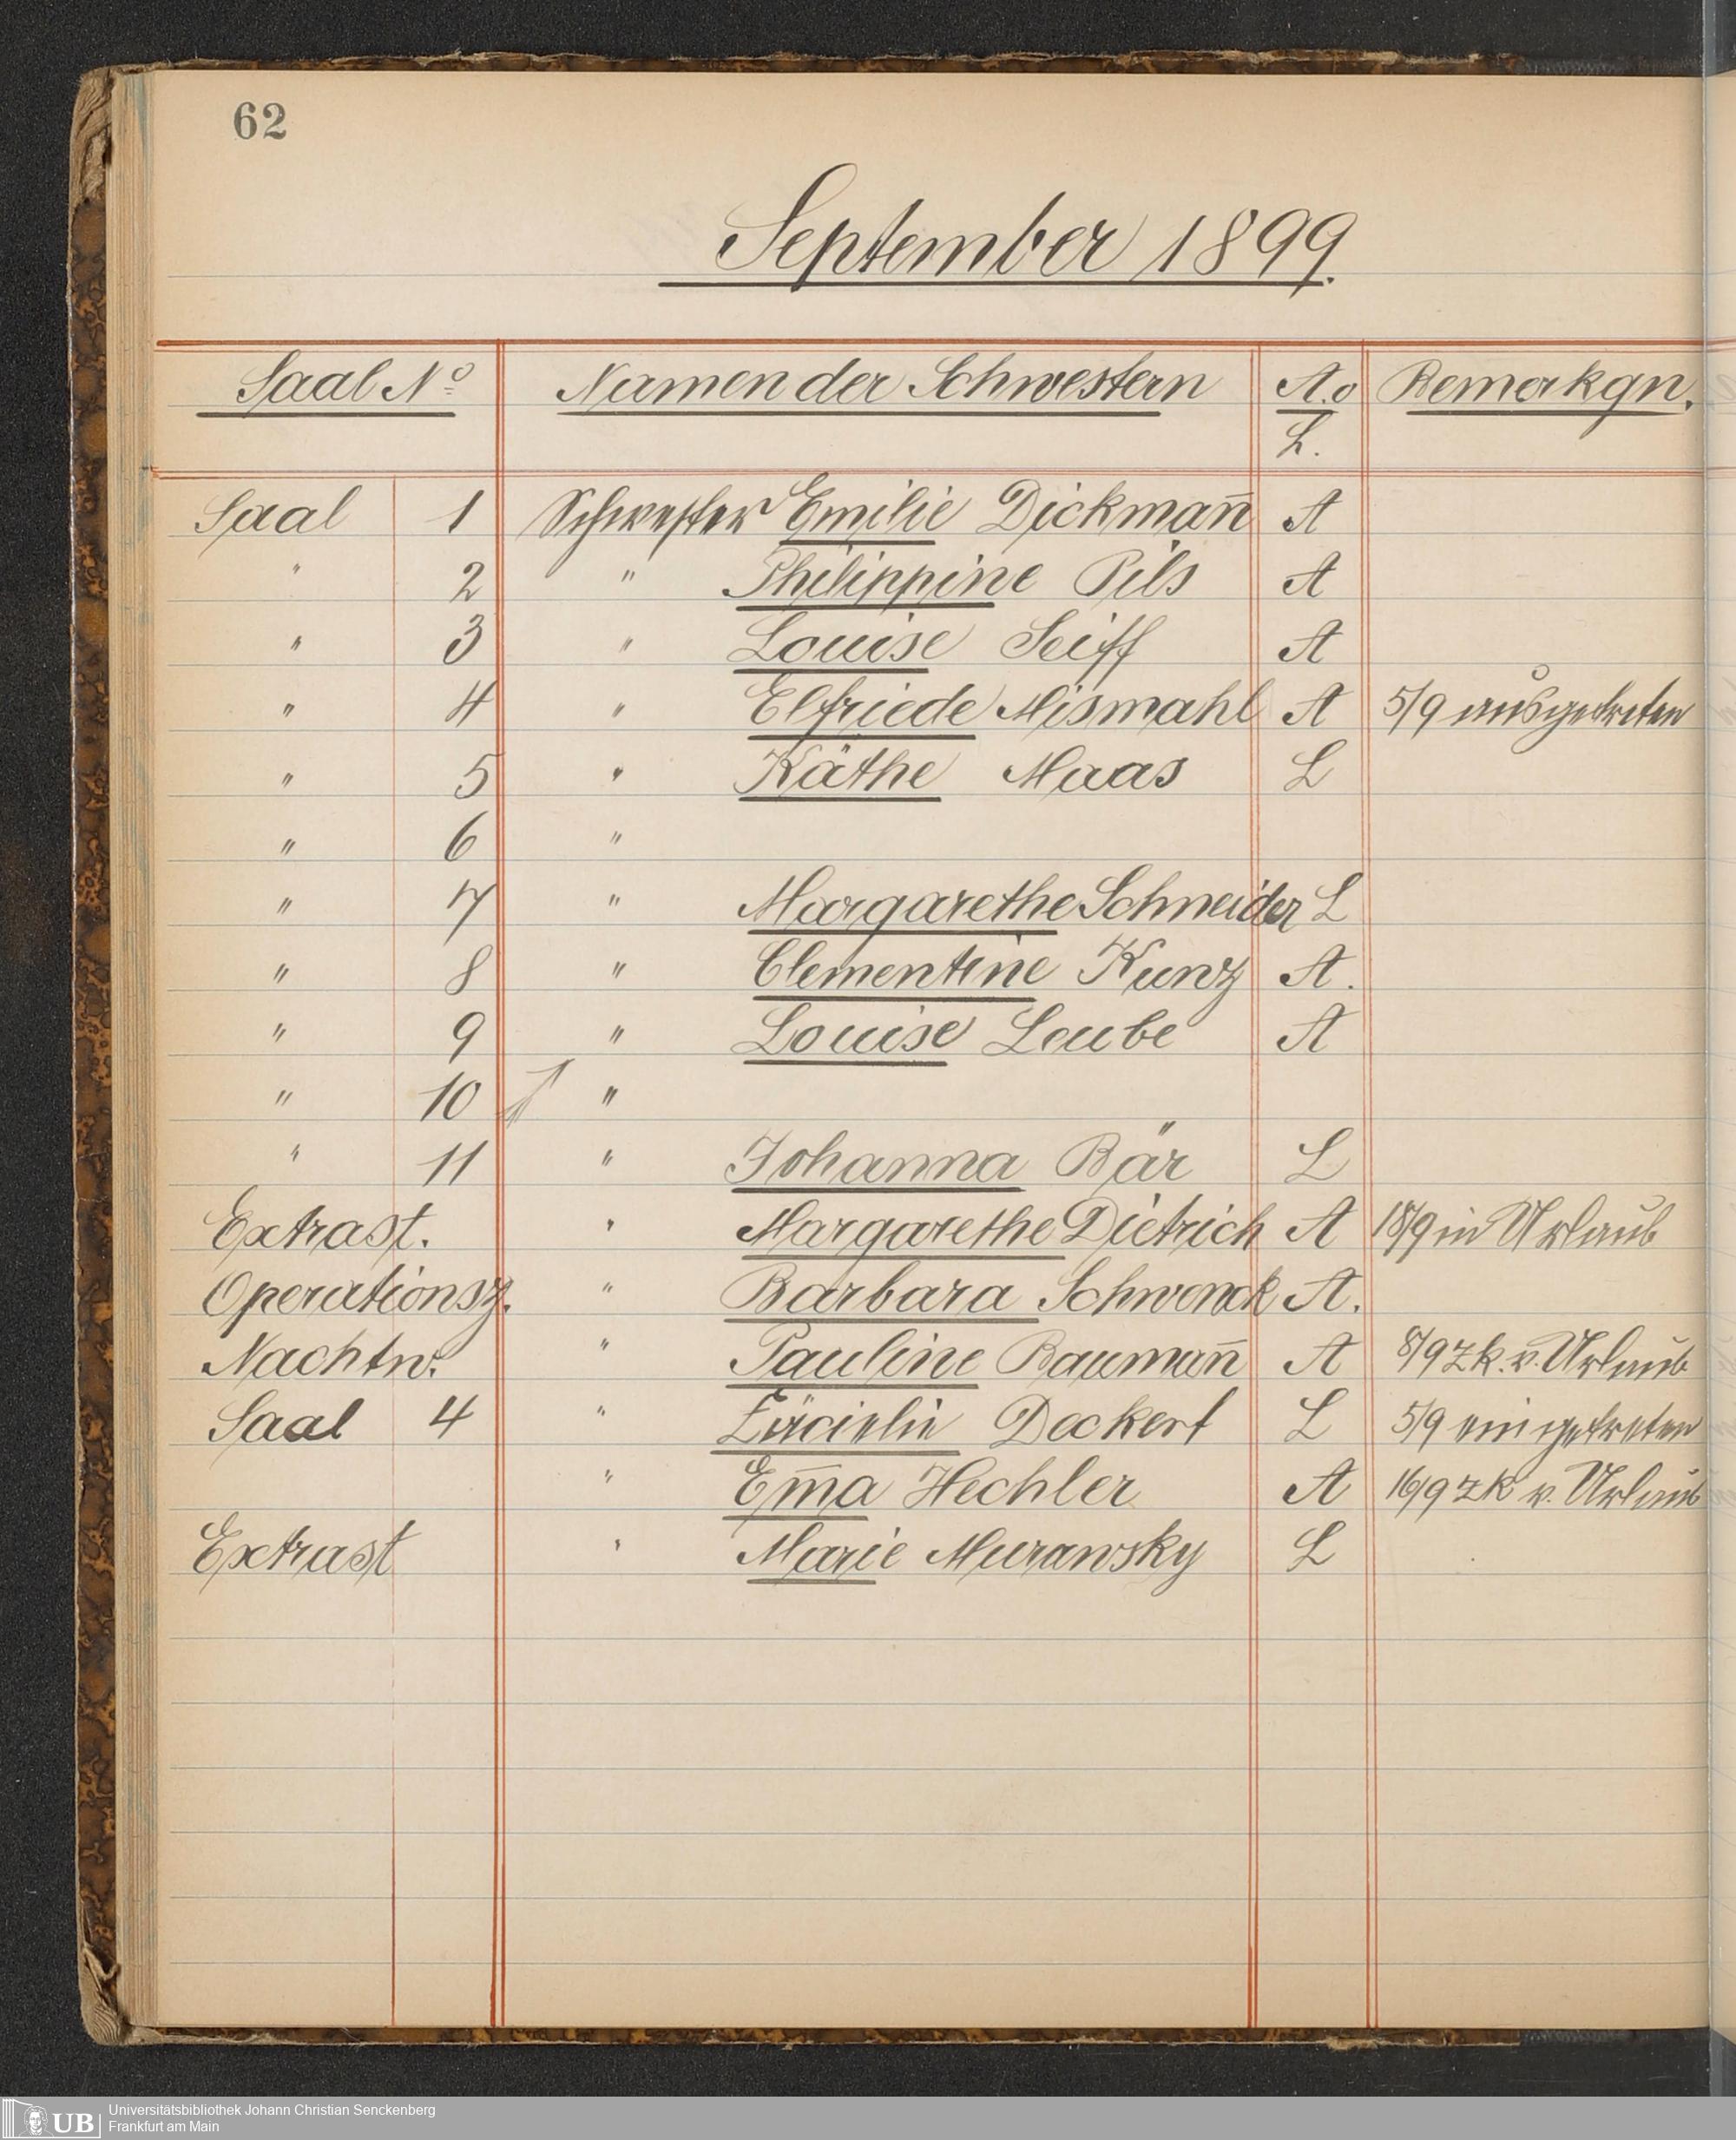 62
September 1899.
Saal No Namen der Schwestern A. o Bemerkgn.
L.
Saal 1 Schwester Emilie Dickman̄ A
" 2 " Philippine Pils A
" 3 " Louise Seiff A
" 4 " Elfriede Mismahl A 5/9 ausgetreten
" 5 " Käthe Maas L
" 6 "
" 7 " Margarethe Schneider L
" 8 " Clementine Kunz A.
" 9 " Louise Leube A
" 10 "
" 11 " Johanna Bär L
Extrast. " Margarethe Dietrich A 18/9 in Urlaub
Operationsz. " Barbara Schwenck A.
Nachtw. " Pauline Bauman̄ A 8/9 zk. v. Urlaub
Saal 4 " Deckert L 5/9 eingetreten
" Em̄a Hechler A 16/9 zk v. Urlaub
Extrast " Marie Murawsky L
UB Universitätsbibliothek Johann Christian Senckenberg
Frankfurt am Main